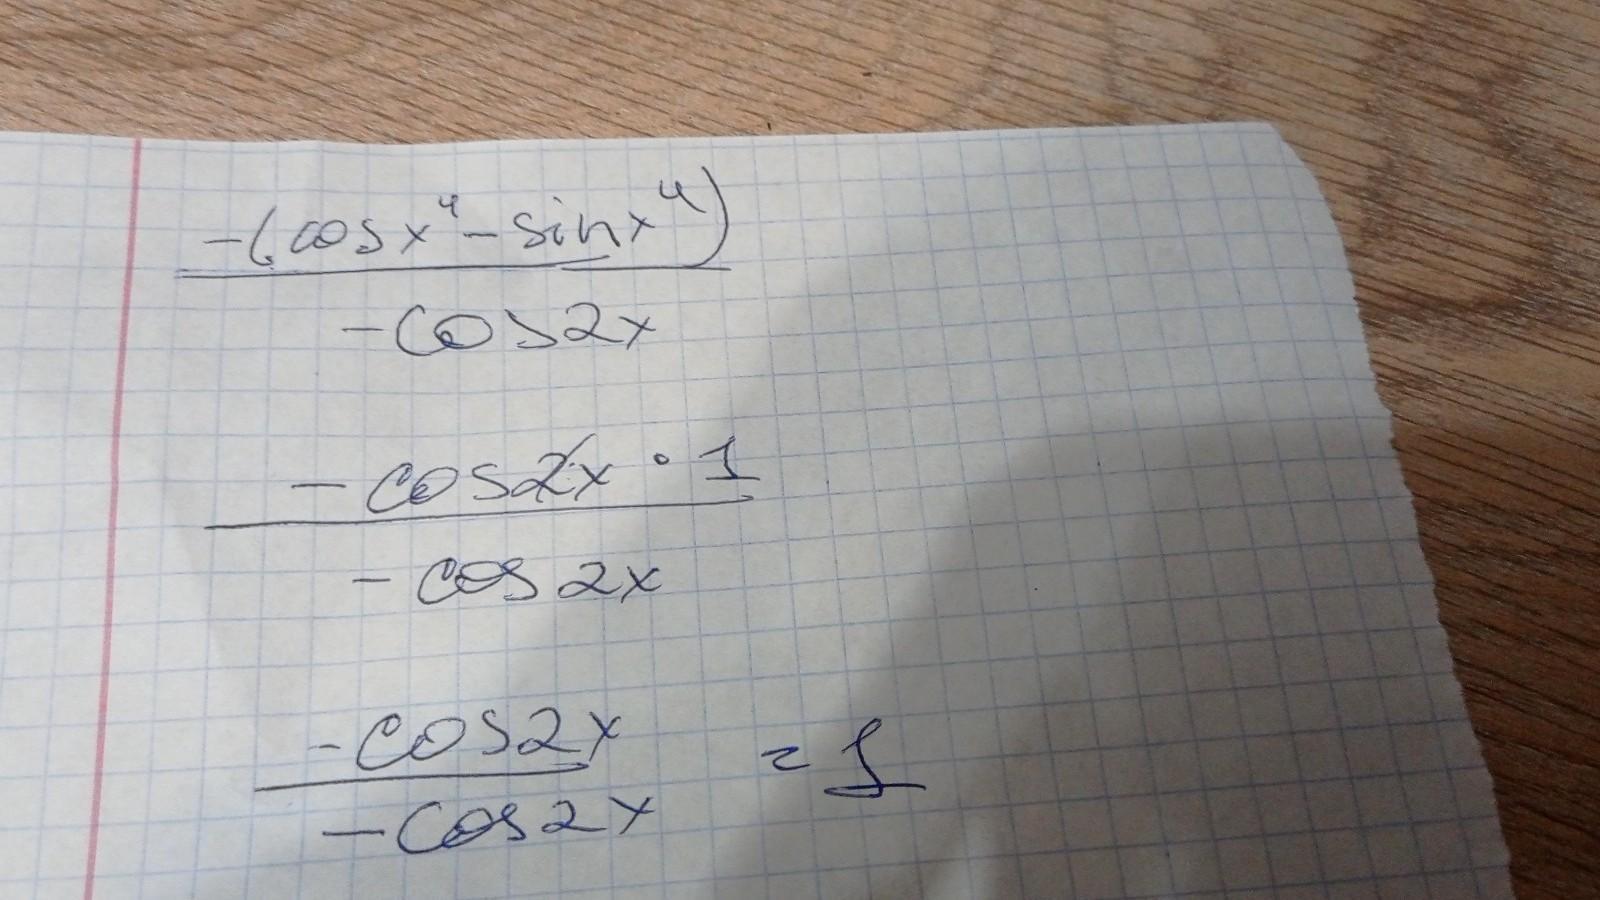 -(cosx⁴-sinx⁴)
-cos2x
-cos2x · 1
-cos2x
-cos2x = 1
-cos2x